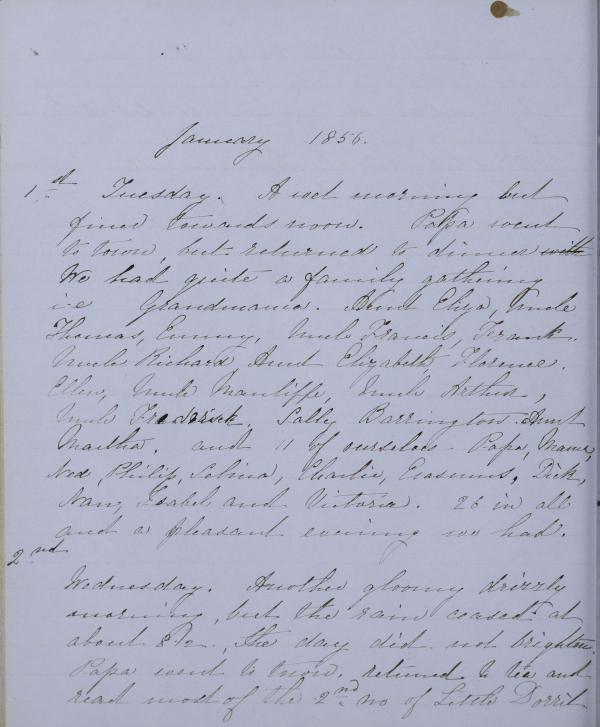 January 1856.
1st Tuesday. A wet morning but
finer towards noon. Papa went
to town, but returned to dinner with
We had quite a family gathering
i-e Grandmama. Aunt Eliza, Uncle
Thomas, Emmy, Uncle Francis, Frank.
Uncle Richard Aunt Elizabeth Florence.
Ellen, Uncle Manliffe, Uncle Arthur,
Uncle Frederick. Sally Barrington. Aunt
Martha. and 11 of ourselves - Papa, Mama,
Ned, Philip, Selina, Charlie, Erasmus, Dick,
Nan, Isabel and Victoria. 26 in all
and a pleasant evening we had.
2nd
Wednesday. Another gloomy drizzly
morning, but the rain ceased at
about 8 1/2. The day did not brighten.
Papa went to town, returned to tea and
read most of the 2nd no of Little Dorrit